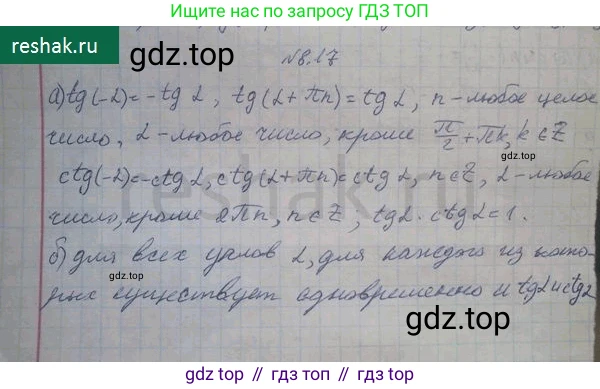 Ищите нас по запросу ГДЗ ТОП
reshak.ru
gdz.top
№8.17
а) tg(-α) = -tg α, tg(α + πn) = tg α, n - любое целое
число, α - любое число, кроме π/2 + πk, k ∈ Z
ctg(-α) = -ctg α, ctg(α + πn) = ctg α, n ∈ Z, α - любое
число, кроме 2πn, n ∈ Z, tg α · ctg α = 1.
б) для всех углов α, для каждого из кото-
gdz.top
рых существует одновременно и tg α и ctg α
gdz.top
gdz.top // гдз.топ // гдз.top